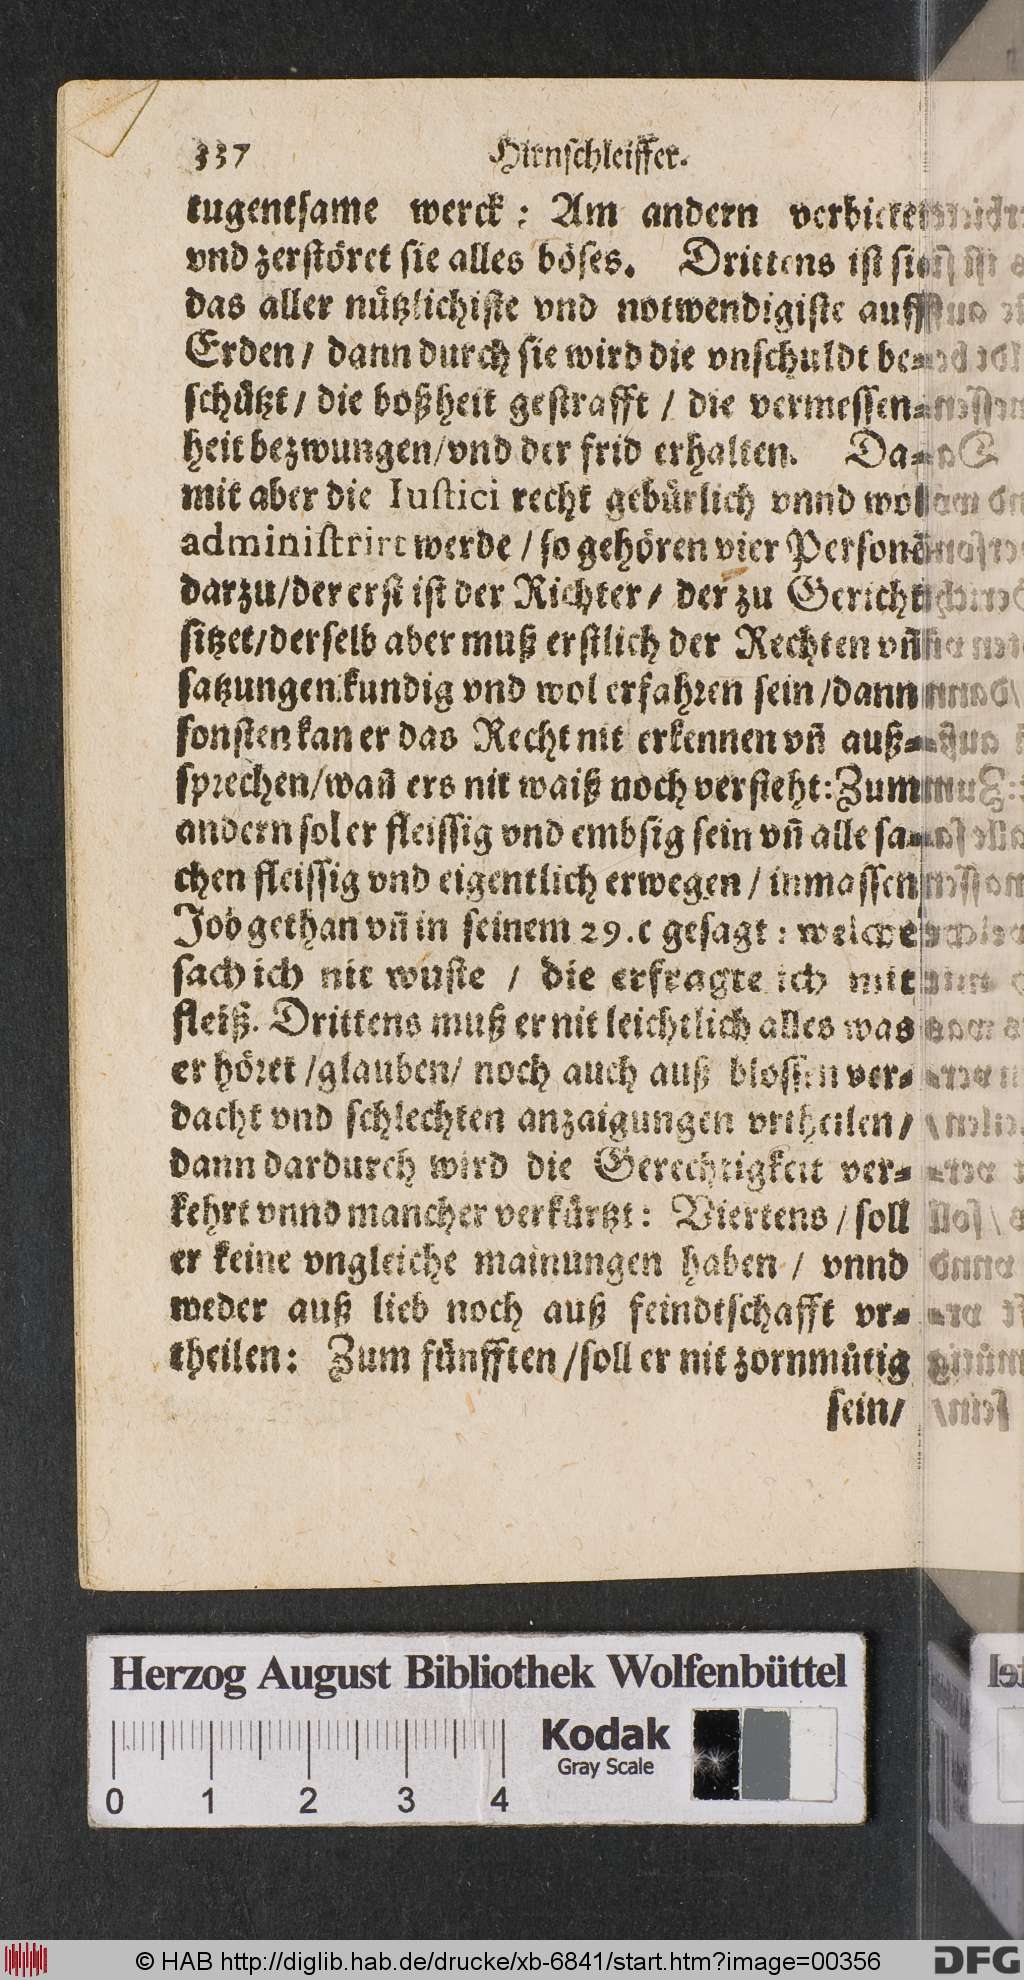 337 Hirnschleiffer.
tugentsame werck: Am andern verbietet
vnd zerstöret sie alles böses. Drittens ist sie
das aller nützlichiste vnd notwendigiste auff
Erden/ dann durch sie wird die vnschuldt be-
schützt/ die boßheit gestrafft / die vermessen-
heit bezwungen/vnd der frid erhalten. Da-
mit aber die Iustici recht gebürlich vnnd wol
administrirt werde / so gehören vier Personē
darzu/der erst ist der Richter/ der zu Gericht
sitzet/derselb aber muß erstlich der Rechten vñ
satzungen kundig vnd wol erfahren sein /dann
sonsten kan er das Recht nit erkennen vñ auß-
sprechen/wañ ers nit waiß noch versteht: Zum
andern sol er fleissig vnd embsig sein vñ alle sa-
chen fleissig vnd eigentlich erwegen / inmassen
Job gethan vñ in seinem 29.c gesagt: welche
sach ich nit wuste / die erfragte ich mit
fleiß. Drittens muß er nit leichtlich alles was
er höret /glauben/ noch auch auß blossen ver-
dacht vnd schlechten anzaigungen vrtheilen/
dann dardurch wird die Gerechtigkeit ver-
kehrt vnnd mancher verkürtzt: Viertens / soll
er keine vngleiche mainungen haben / vnnd
weder auß lieb noch auß feindtschafft vr-
theilen: Zum fünfften /soll er nit zornmütig
sein/
Herzog August Bibliothek Wolfenbüttel
Kodak
Gray Scale
0 1 2 3 4
© HAB http://diglib.hab.de/drucke/xb-6841/start.htm?image=00356
DFG